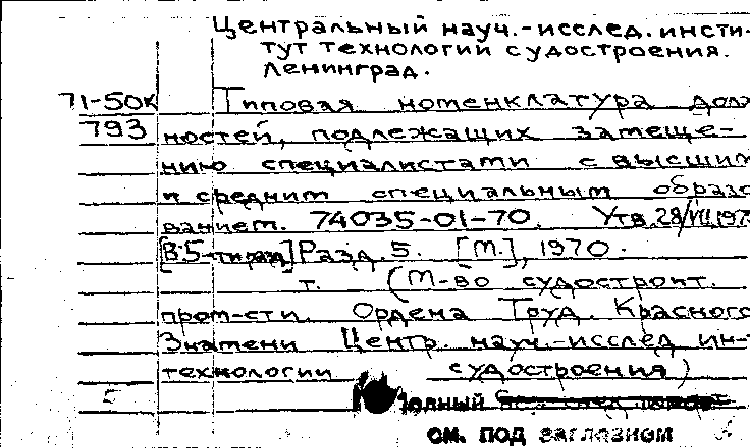 Центральный науч.-исслед. инсти-
тут технологии судостроения.
Ленинград.
71-50к Типовая номенклатура долж
793 ностей, подлежащих замеще-
нию специалистами с высшим
и средним специальным образо
ванием. 74035-01-70. Утв. 28/VII 197
[В 5-ти разд.] Разд. 5. [М.], 1970.
т. (М-во судостроит.
пром-сти. Ордена Труд. Красного
Знамени Центр. науч.-исслед ин-т
технологии судостроения)
полный
см. под заглавном